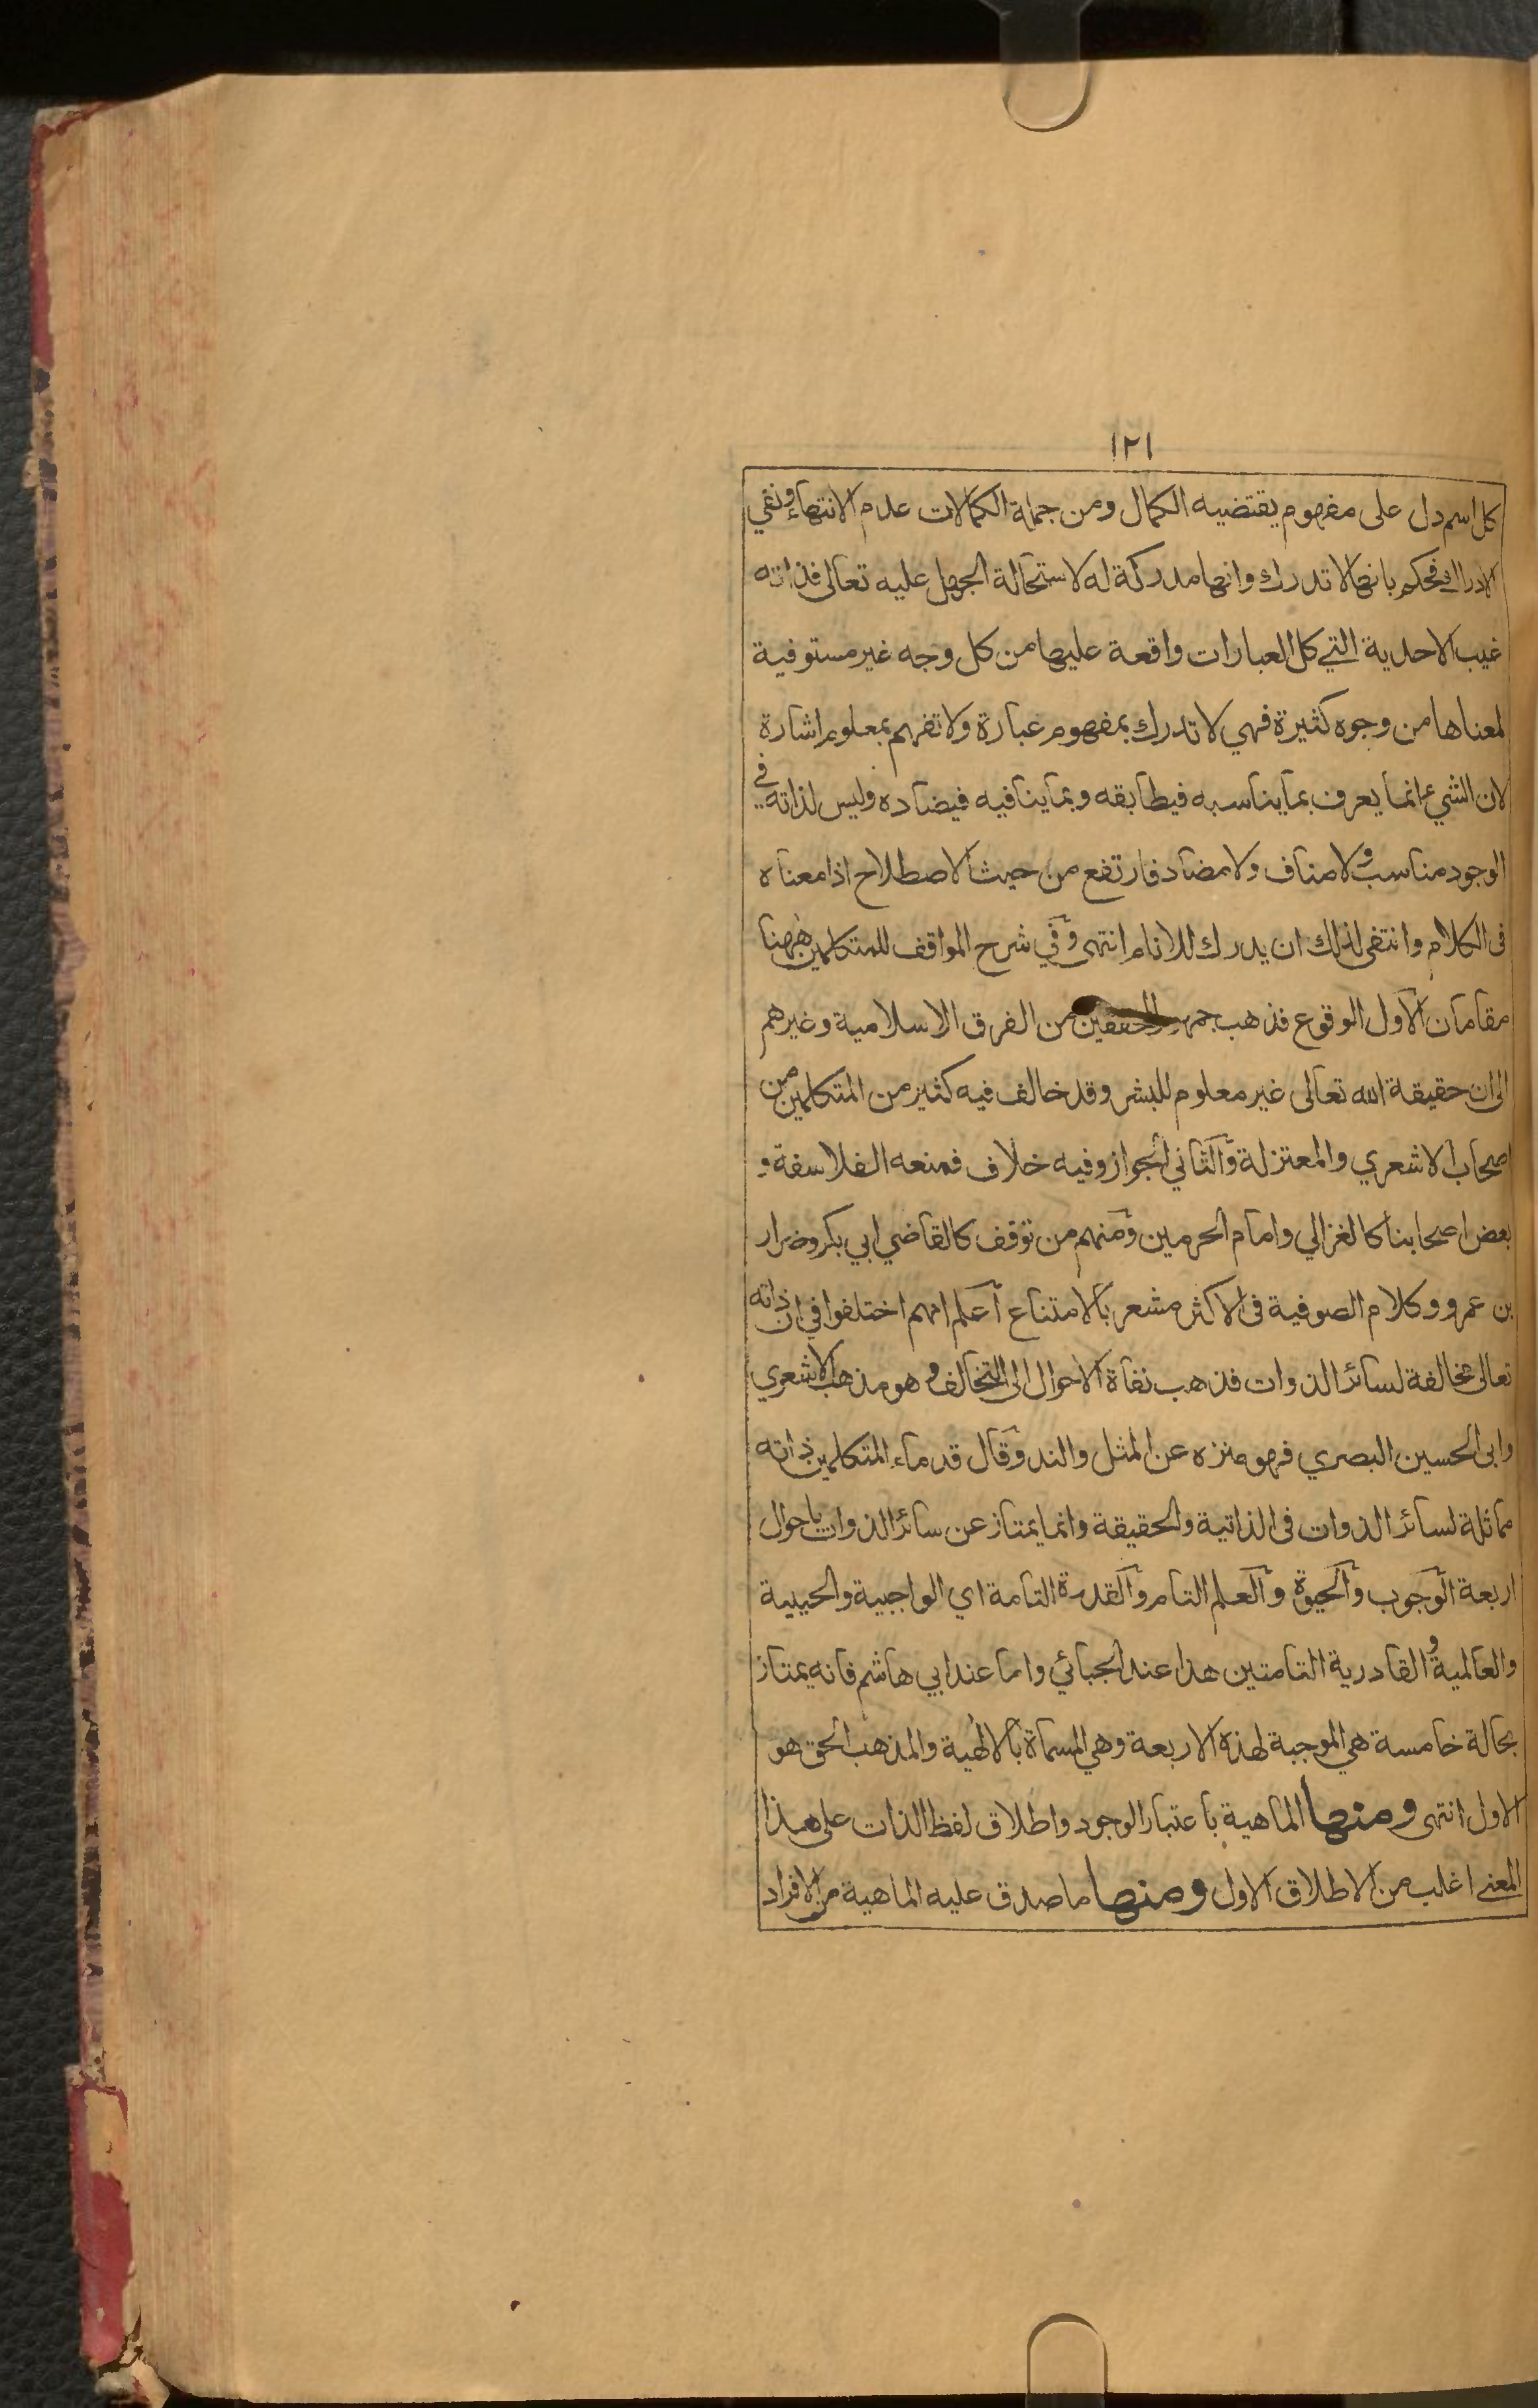 ١٢١
كل اسم دل على مفهوم يقتضيه الكمال ومن جملة الكمالات عدم الانتهاء ونفي
الادراك فحكم بانها لا تدرك وانها مدركة له لاستحالة الجهل عليه تعالى فذاته
غيب الاحدية التي كل العبارات واقعة عليها من كل وجه غير مستوفية
لمعناها من وجوه كثيرة فهي لا تدرك بمفهوم عبارة ولا تفهم بمعلوم اشارة
لان الشيء انما يعرف بما يناسبه فيطابقه وبما ينافيه فيضاده وليس لذاته في
الوجود مناسب ولا مناف ولا مضاد فارتفع من حيث الاصطلاح اذا معناه
فى الكلام وانتفى لذلك ان يدرك للانام انتهى وفي شرح المواقف للمتكلمين ههنا
مقامان الاول الوقوع فذهب جمهور المحققين من الفرق الاسلامية وغيرهم
الى ان حقيقة الله تعالى غير معلوم للبشر وقد خالف فيه كثير من المتكلمين من
اصحاب الاشعري والمعتزلة والثاني الجواز وفيه خلاف فمنعه الفلاسفة و
بعض اصحابنا كالغزالي وامام الحرمين ومنهم من توقف كالقاضي ابي بكر وضرار
بن عمرو وكلام الصوفية فى الاكثر مشعر بالامتناع آعلم انهم اختلفوا في ان ذاته
تعالى مخالفة لسائر الذوات فذهب نفاة الاحوال الى التخالف وهو مذهب الاشعري
وابى الحسين البصري فهو منزه عن المثل والند وقال قدماء المتكلمين ذاته
مماثلة لسائر الذوات فى الذاتية والحقيقة وانما يمتاز عن سائر الذوات باحوال
اربعة الوجوب والحيوة والعلم التام والقدرة التامة اي الواجبية والحيية
والعالمية والقادرية التامتين هذا عند الجبائي واما عند ابي هاشم فانه يمتاز
بحالة خامسة هي الموجبة لهذه الاربعة وهي المسماة بالالهية والمذهب الحق هو
الاول انتهى ومنها الماهية باعتبار الوجود واطلاق لفظ الذات على هذا
المعنى اغلب من الاطلاق الاول ومنها ما صدق عليه الماهية من الافراد